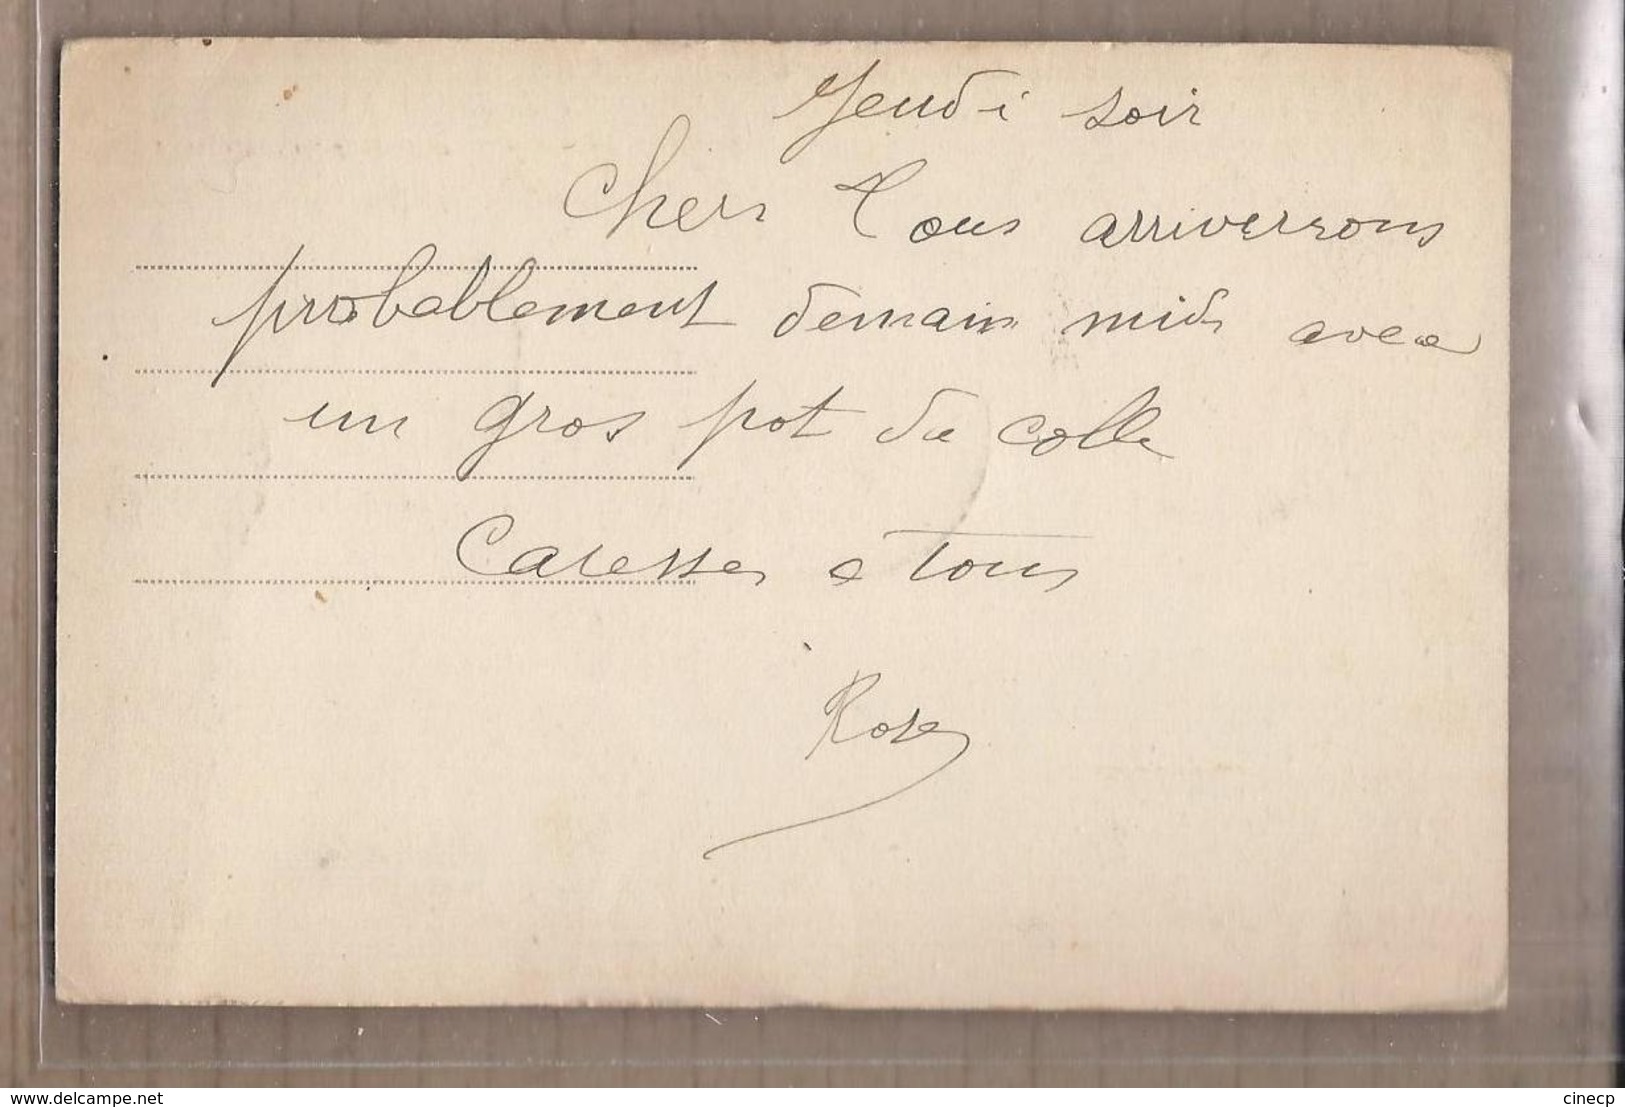 Jeudi soir
Chers Tous arriverons
probablement demain midi avec
un gros pot de colle
Caresses a tous
Rose
www.delcampe.net
cinecp